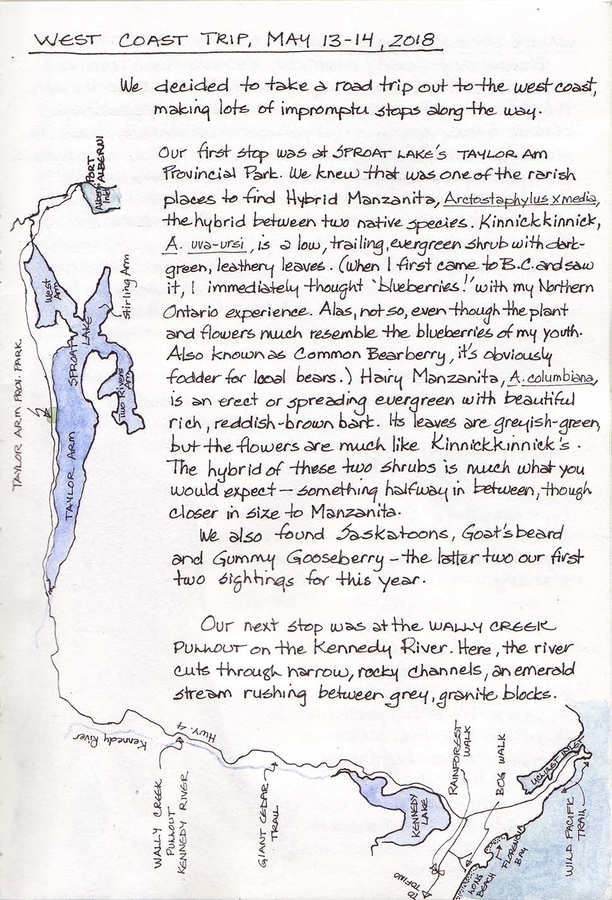 WEST COAST TRIP, MAY 13-14, 2018
We decided to take a road trip out to the west coast,
making lots of impromptu stops along the way.
Our first stop was at SPROAT LAKE'S TAYLOR Am
Provincial Park. We knew that was one of the rarish
places to find Hybrid Manzanita, Arctostaphylus x media,
the hybrid between two native species. Kinnickkinnick,
A. uva-ursi, is a low, trailing, evergreen shrub with dark-
green, leathery leaves. (When I first came to B.C. and saw
it, I immediately thought 'blueberries!' with my Northern
Ontario experience. Alas, not so, even though the plant
and flowers much resemble the blueberries of my youth.
Also known as Common Bearberry, it's obviously
fodder for local bears.) Hairy Manzanita, A. columbiana,
is an erect or spreading evergreen with beautiful
rich, reddish-brown bark. Its leaves are greyish-green,
but the flowers are much like Kinnickkinnick's.
The hybrid of these two shrubs is much what you
would expect - something halfway in between, though
closer in size to Manzanita.
We also found Saskatoons, Goat'sbeard
and Gummy Gooseberry - the latter two our first
two sightings for this year.
Our next stop was at the WALLY CREEK
PULLOUT on the Kennedy River. Here, the river
cuts through narrow, rocky channels, an emerald
stream rushing between grey, granite blocks.
PORT
ALBERNI
Alberni
Inlet
West
Arm
Stirling Arm
SPROAT
LAKE
Two Rivers
Arm
TAYLOR ARM PROV. PARK
TAYLOR ARM
Kennedy River
Hwy. 4
WALLY CREEK
PULLOUT
KENNEDY RIVER
GIANT CEDAR
TRAIL
KENNEDY
LAKE
RAINFOREST
WALK
BOG WALK
UCLUELET INLET
WILD PACIFIC
TRAIL
FLORENCIA
BAY
LONG
BEACH
TO
TOFINO